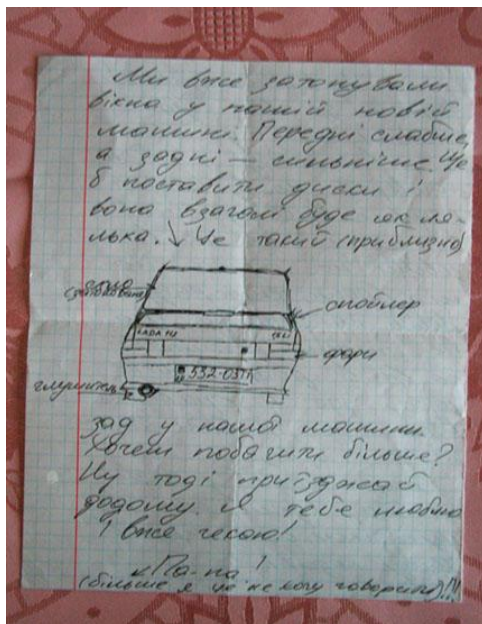 Ми вже затонували
вікна у нашій новій
машині. Передні слабше,
а задні — сильніше. Ще
б поставити диски і
вона взагалі буде як ля-
лька. Це такий (приблизно)
спойлер
LADA
фари
532-03TK
глушитель
зад у нашої машини.
Хочеш побачити більше?
Ну тоді приїзджай
додому. Я тебе люблю
і вже чекаю!
Па-па!
(більше я не можу говорити)!!!